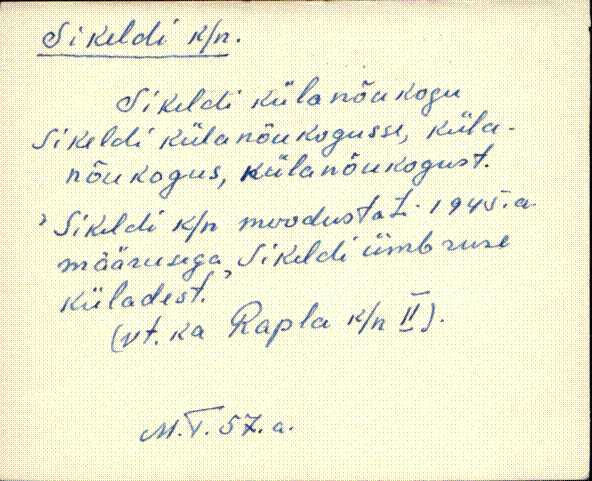 Sikeldi k/n.
Sikeldi külanõukogu
Sikeldi külanõukogusse, küla-
nõukogus, külanõukogust.
'Sikeldi k/n moodustati 1945.a
määrusega Sikeldi ümbruse
küladest.'
(vt. ka Rapla k/n II).
M.T. 57.a.